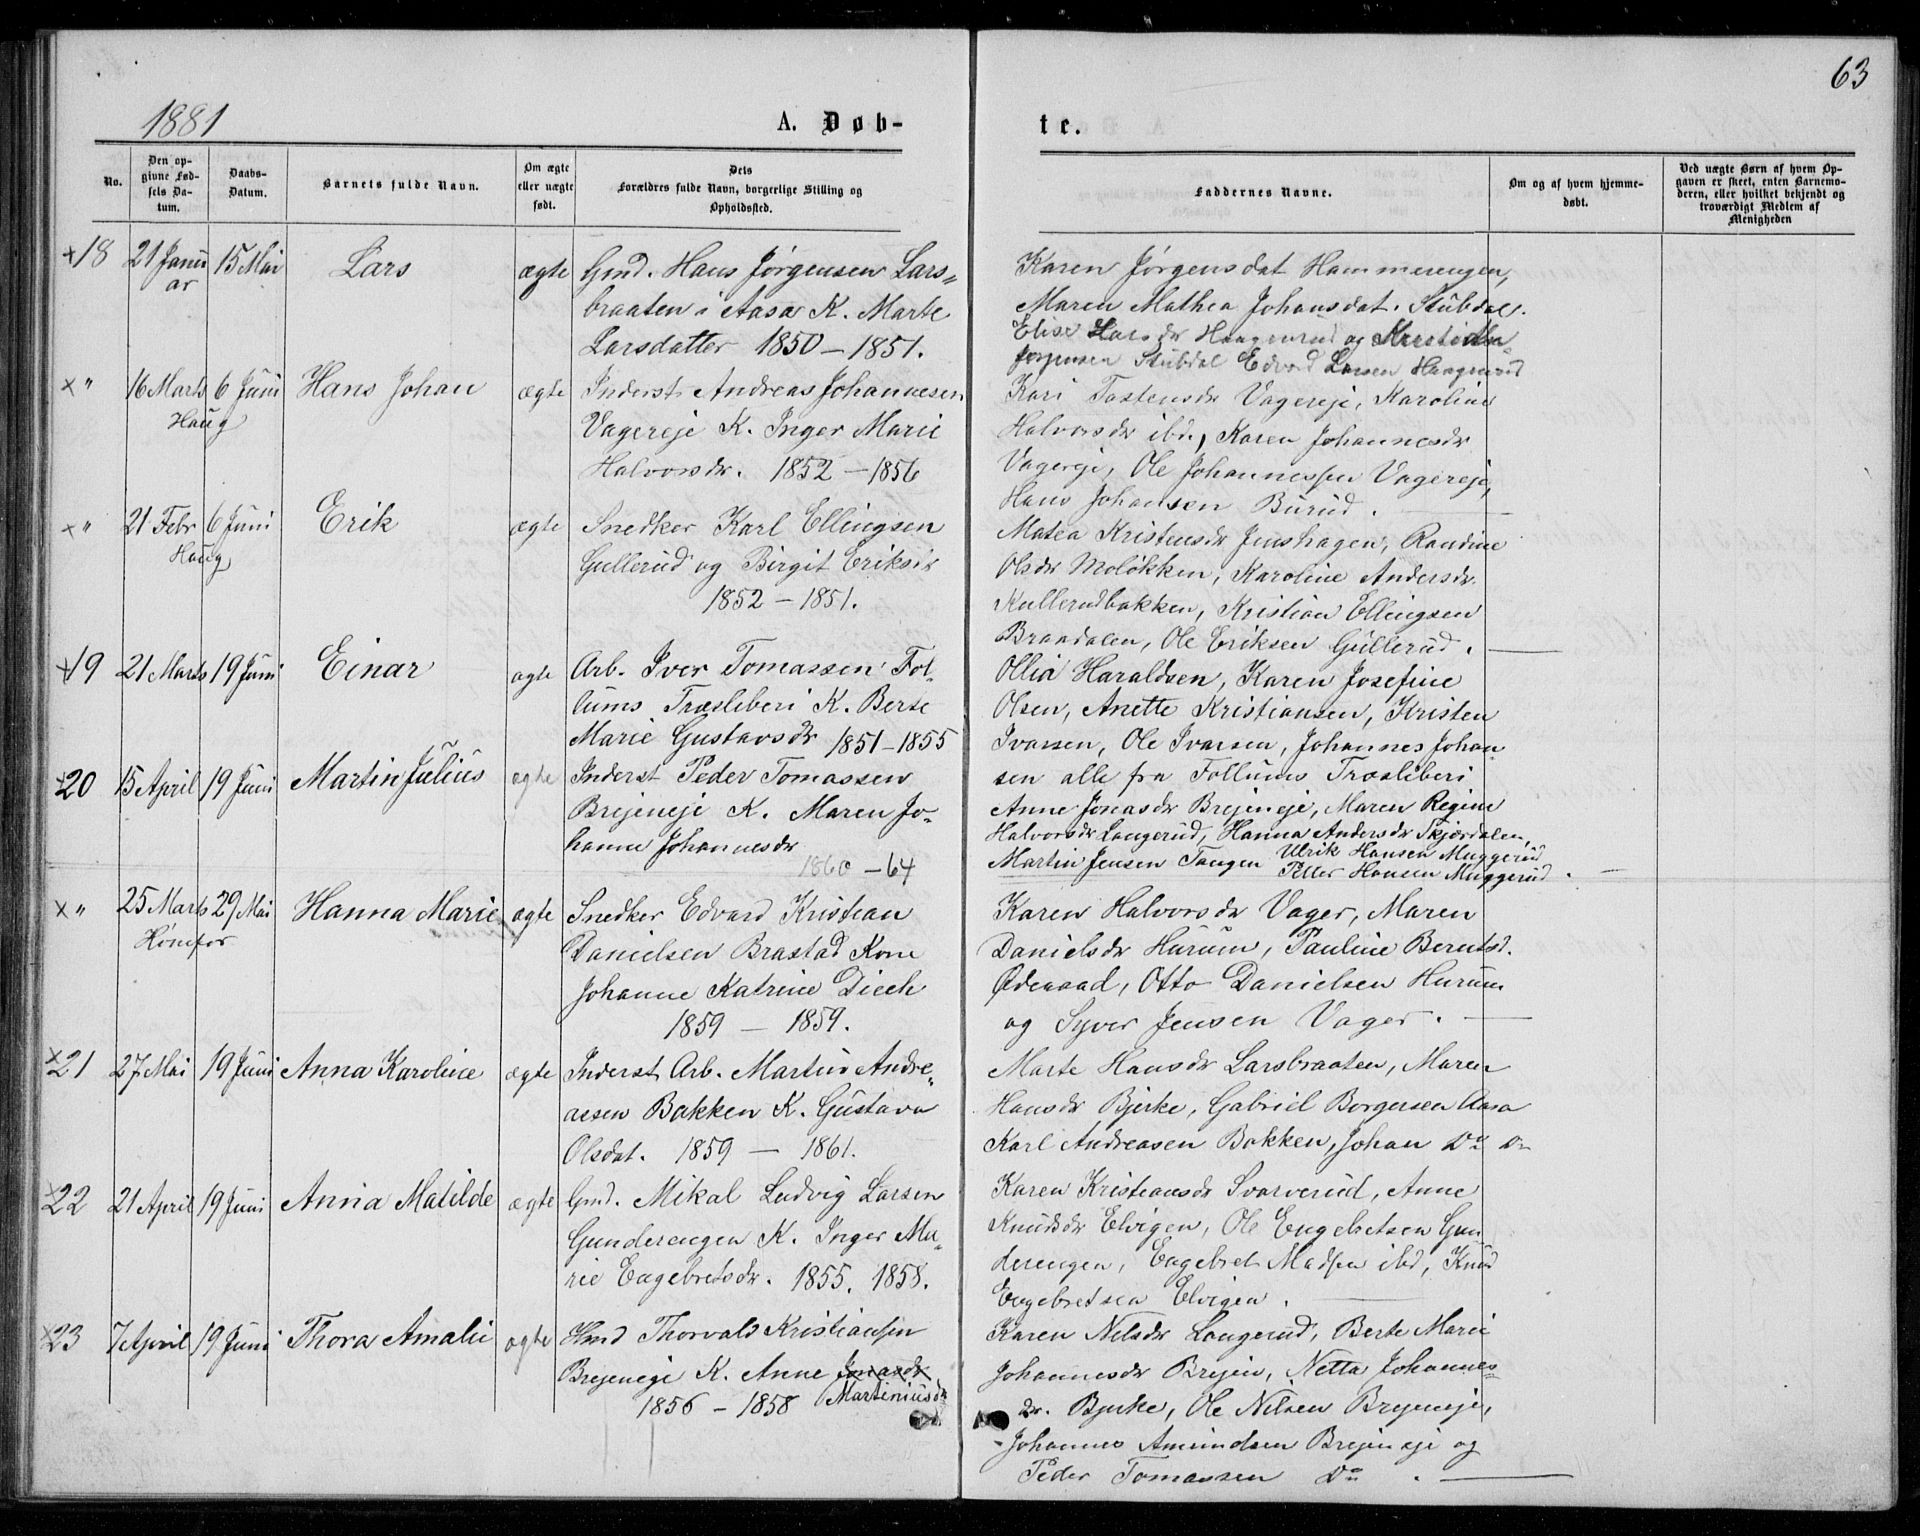 63
1881
A. Døb-
te.
No.
Den op-
givne Fød-
sels Da-
tum.
Daabs-
Datum.
Barnets fulde Navn.
Om ægte
eller uægte
født.
Dets
Forældres fulde Navn, borgerlige Stilling og
Opholdssted.
Faddernes Navne.
Om og af hvem hjemme-
døbt.
Ved uægte Børn af hvem Op-
gaven er skeet, enten Barnemo-
deren, eller hvilket bekjendt og
troværdigt Medlem af
Menigheden
x18 21 Janu 15 Mai Lars ægte Gmd. Hans Jørgensen Lars-
ar
braaten i Aasa K. Marte
Larsdatter 1850 - 1851.
Karen Jørgensdat Hammerengen,
Maren Mathea Johansdat. Stubdal.
Elise Larsdr Haagenrud og Kristian
Jørgensen Stubdal Edvard Larsen Haagenrud
x " 16 Marts 6 Juni Hans Johan ægte Inderst Andreas Johannesen
Haug
Vagereje K. Inger Marie
Halvorsdr. 1852 - 1856
Kari Tostensdr Vagereje, Karoline
Halvorsdr ibd., Karen Johannesdr
Vagereje, Ole Johannessen Vagereje,
Hans Johansen Burud.
x " 21 Febr 6 Juni Erik ægte Snedker Karl Ellingsen
Haug
Gullerud og Birgit Eriksdr
1852 - 1851.
Matea Kristensdr Jenshagen, Randine
Olsdr Moløkken, Karoline Andersdr
Kullerudbakken, Kristian Ellingsen
Braadalen, Ole Eriksen Gullerud.
x19 21 Marts 19 Juni Einar ægte Arb. Iver Tomassen Fol-
lums Træsliberi K. Berte
Marie Gustavsdr 1851 - 1855
Ollia Haraldsen, Karen Josefine
Olsen, Anette Kristiansen, Kristen
Ivarsen, Ole Ivarsen, Johannes Johan-
sen alle fra Follums Træsliberi
x20 15 April 19 Juni Martin Julius ægte Inderst Peder Tomassen
Brejeneje K. Maren Jo-
hanne Johannesdr
1860 - 64
Anne Jonasdr Brejeneje, Maren Regine
Halvorsdr Langerud, Hanna Andersdr Skjærdalen,
Martin Jensen Tangen Ulrik Hansen Muggerud
Peller Hansen Muggerud.
x " 25 Marts 29 Mai Hanna Marie ægte Snedker Edvard Kristian
Hønefos
Danielsen Brastad Kone
Johanne Katrine Diech
1859 - 1859.
Karen Halvorsdr Vager, Maren
Danielsdr Hurum, Pauline Berntsd.
Ødegaad, Otto Danielsen Hurum
og Syver Jensen Vager.
x21 27 Mai 19 Juni Anna Karoline ægte Inderst Arb. Martin Andre-
assen Bakken K. Gustava
Olsdat. 1859 - 1861.
Marte Hansdr Larsbraaten, Maren
Hansdr Bjerke, Gabriel Borgersen Aasa
Karl Andreasen Bakken, Johan Do Do
x22 21 April 19 Juni Anna Matilde ægte Gmd. Mikal Ludvig Larsen
Gunderengen K. Inger Ma-
rie Engebretsdr. 1855. 1858.
Karen Kristiansdr Svarverud, Anne
Knudsdr Elvigen, Ole Engebretsen Gun
derengen, Engebret Madsen ibd, Knud
Engebretsen Elvigen.
x23 7 April 19 Juni Thora Amalie ægte Hmd Thorvald Kristiansen
Brejeneje K. Anne Jonasdr
1856 - 1858 Martiniusdr
Karen Nilsdr Langerud, Berte Marie
Johannesdr Brejen, Netta Johannes-
dr. Bjerke, Ole Nilsen Brejeneje,
Johannes Amundsen Brejeneje og
Peder Tomassen Do.